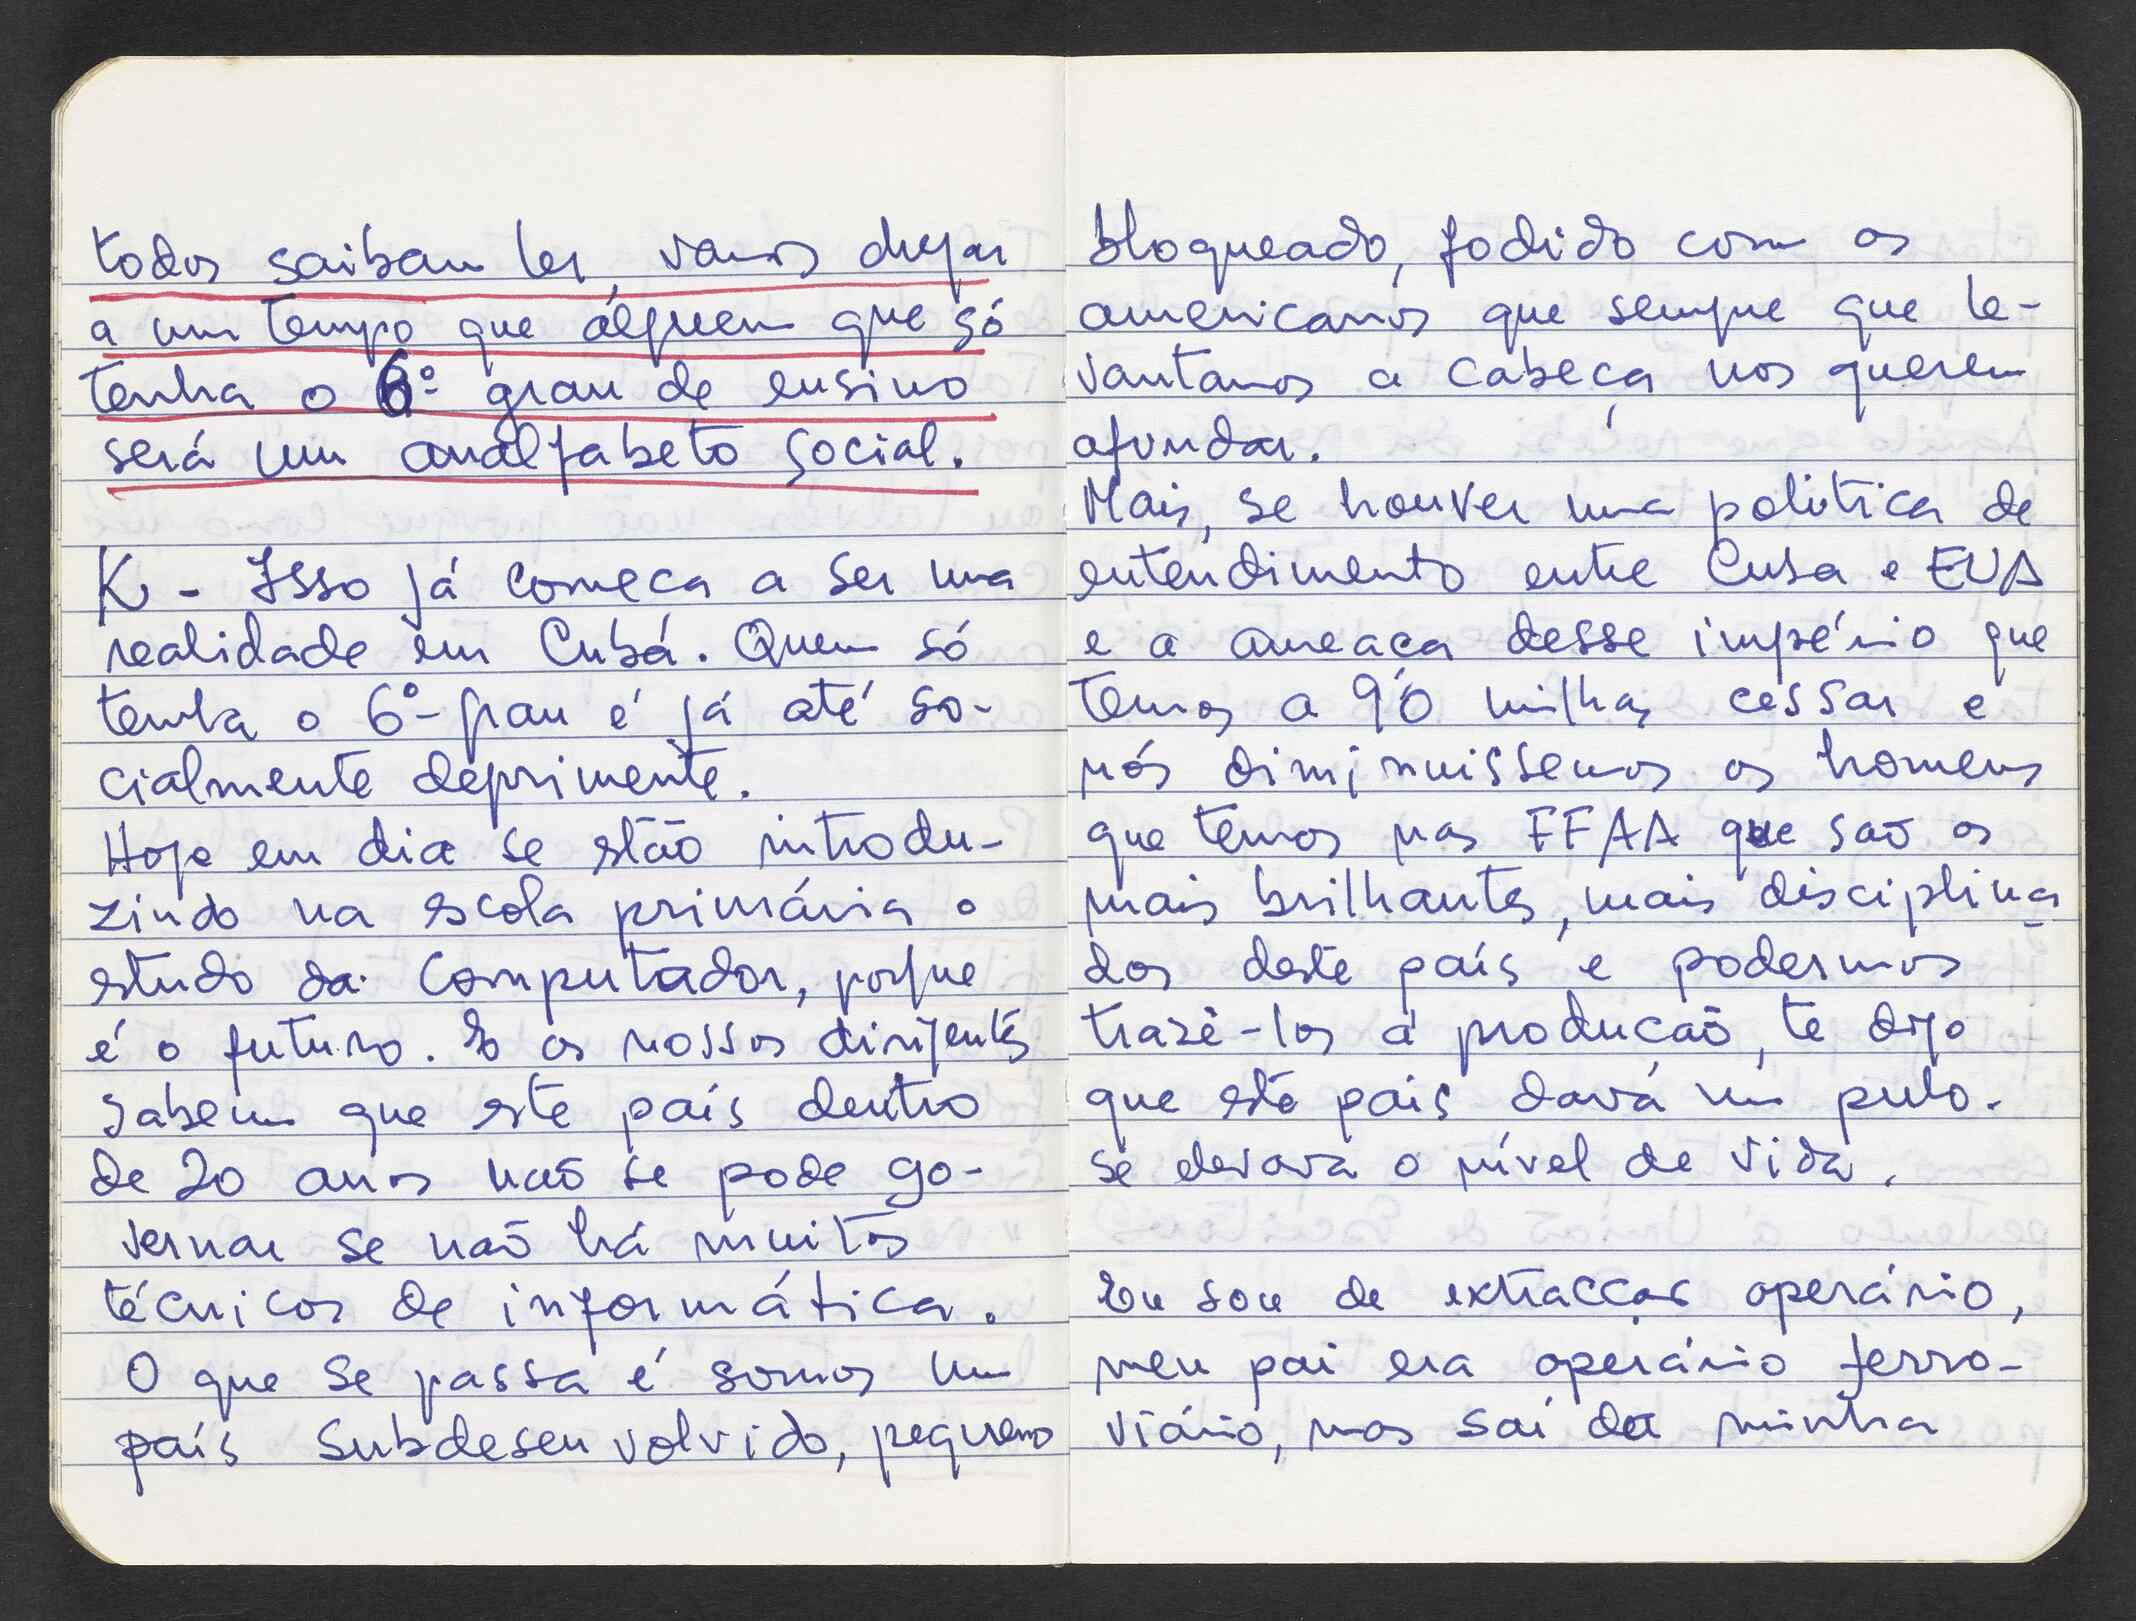 todos saiban ler, vamos chegar
a um tempo que álguem que só
tenha o 6º grau de ensino
será um analfabeto social.
K - Isso já começa a ser uma
realidade em Cubá. Quem só
tenha o 6º grau é já até so-
cialmente deprimente.
Hoje em dia se stão introdu-
zindo na escola primária o
studo da computador, porque
é o futuro. E os nossos dirigentes
sabem que este país dentro
de 20 anos naõ se pode go-
vernar se naõ há muitos
técnicos de informática.
O que se passa é somos um
país subdesenvolvido, pequeno
bloqueado, fodido com os
americanos que sempre que le-
vantamos a cabeça nos querem
afundar.
Mais, se houver uma politica de
entendimento entre Cuba e EUA
e a ameaça desse império que
temos a 90 milhas cessar e
nós diminuissemos os homens
que temos nas FFAA que saõ os
mais brilhantes, mais disciplina-
dos deste país e podermos
trazê-los á producaõ, te digo
que este pais davá um pulo.
se elevava o nível de vida.
Eu sou de extracçao operário,
meu pai era operário ferro-
viário, mas saí da minha